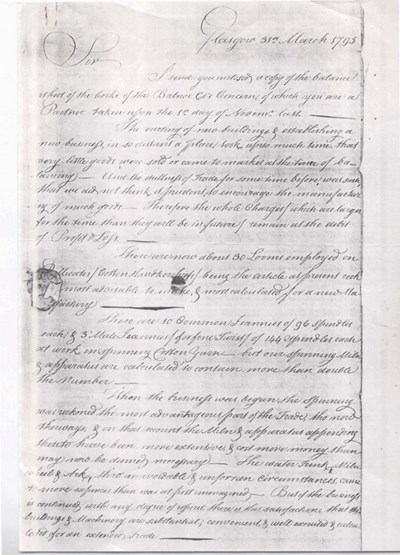 Glasgow 31st March 1795
Sir
I send you inclosed a copy of the balance
sheet of the books of the Concern, of which you are a
Partner taken upon the 1st day of Novemr. last.
The erecting of new buildings & establishing a
new business, in so distant a place, took up so much time, that
very little goods were sold or came to market at the time of ba-
lancing. And the dullness of Trade for some time before, was such,
that we did not think it prudent, to encourage the manufactur
ing of much goods. Therefore the whole Charges (which are larger
for the time than they will be in future) remain at the debit
of Profit & Loss.
There are now about 30 Looms employed in
Cotton Handkerchiefs, being the article at present
most & most calculated for a new
There are 10 Common Jeannies of 96 Spindles
each, & 3 Mule Jeannies (for fine Twist) of 144 Spindles each
at work in spinning Cotton Yarn but our spinning Milns
& apparatus are calculated to contain more than double
the Number
When the business was begun the Spinning
was reckoned the most advantageous part of the Trade, tho now
otherways, & on that account the Milns & apparatus
thereto have been more extensive, & cost more money than
may now be deemed necessary. The water
& Ark, thro' unavoidable & unforeseen Circumstances, came
to more expence than was at first immagined. But if the business
is continued with any degree of spirit there is this satisfaction, that the
buildings & Machinery are substantial, convenient, & well executed &
for an extensive Trade